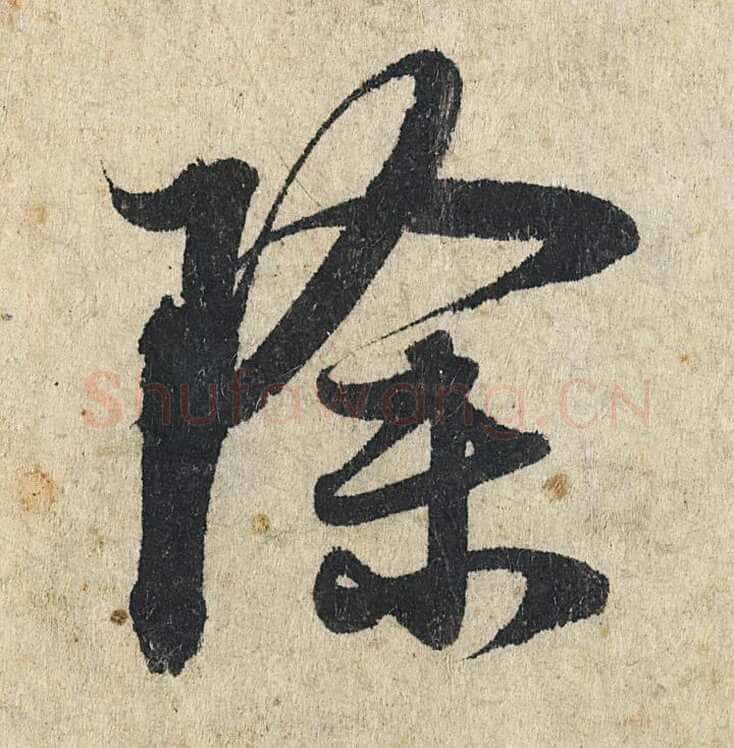 除
Shufawang.CN